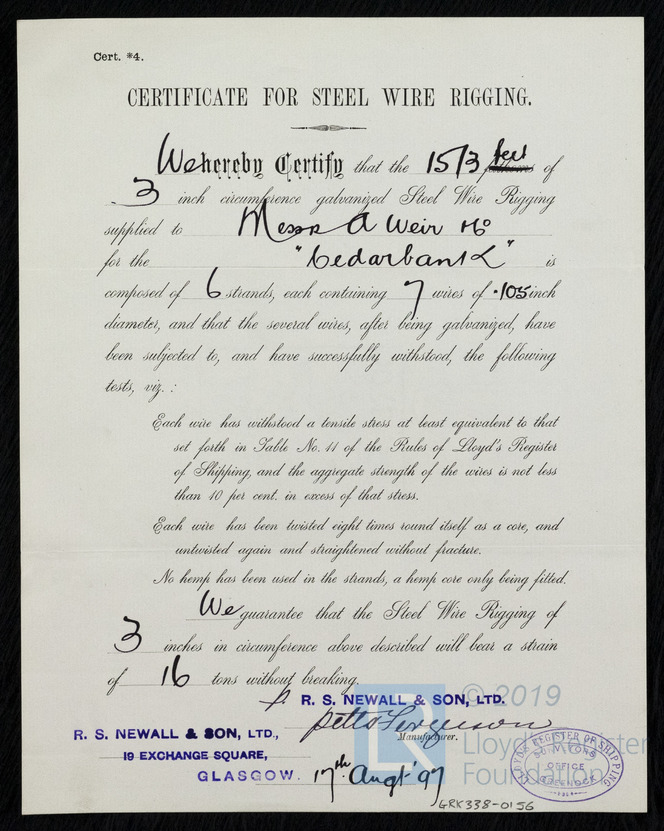 Cert. *4.
CERTIFICATE FOR STEEL WIRE RIGGING.
We hereby Certify that the 15/3 feet fathoms of
3 inch circumference galvanized Steel Wire Rigging
supplied to Messrs A Weir & Co
for the "Cedarbank" is
composed of 6 strands, each containing 7 wires of .105 inch
diameter, and that the several wires, after being galvanized, have
been subjected to, and have successfully withstood, the following
tests, viz. :
Each wire has withstood a tensile stress at least equivalent to that
set forth in Table No. 11 of the Rules of Lloyd's Register
of Shipping, and the aggregate strength of the wires is not less
than 10 per cent. in excess of that stress.
Each wire has been twisted eight times round itself as a core, and
untwisted again and straightened without fracture.
No hemp has been used in the strands, a hemp core only being fitted.
We guarantee that the Steel Wire Rigging of
3 inches in circumference above described will bear a strain
of 16 tons without breaking.
© 2019
p. R. S. NEWALL & SON, LTD.
Ferguson
Manufacturer.
R. S. NEWALL & SON, LTD.,
19 EXCHANGE SQUARE,
GLASGOW.
17th Augt '97
LR
Lloyd's Register
Foundation
LLOYDS REGISTER OF SHIPPING
SURVEYORS
OFFICE
GREENOCK
GRK338-0156